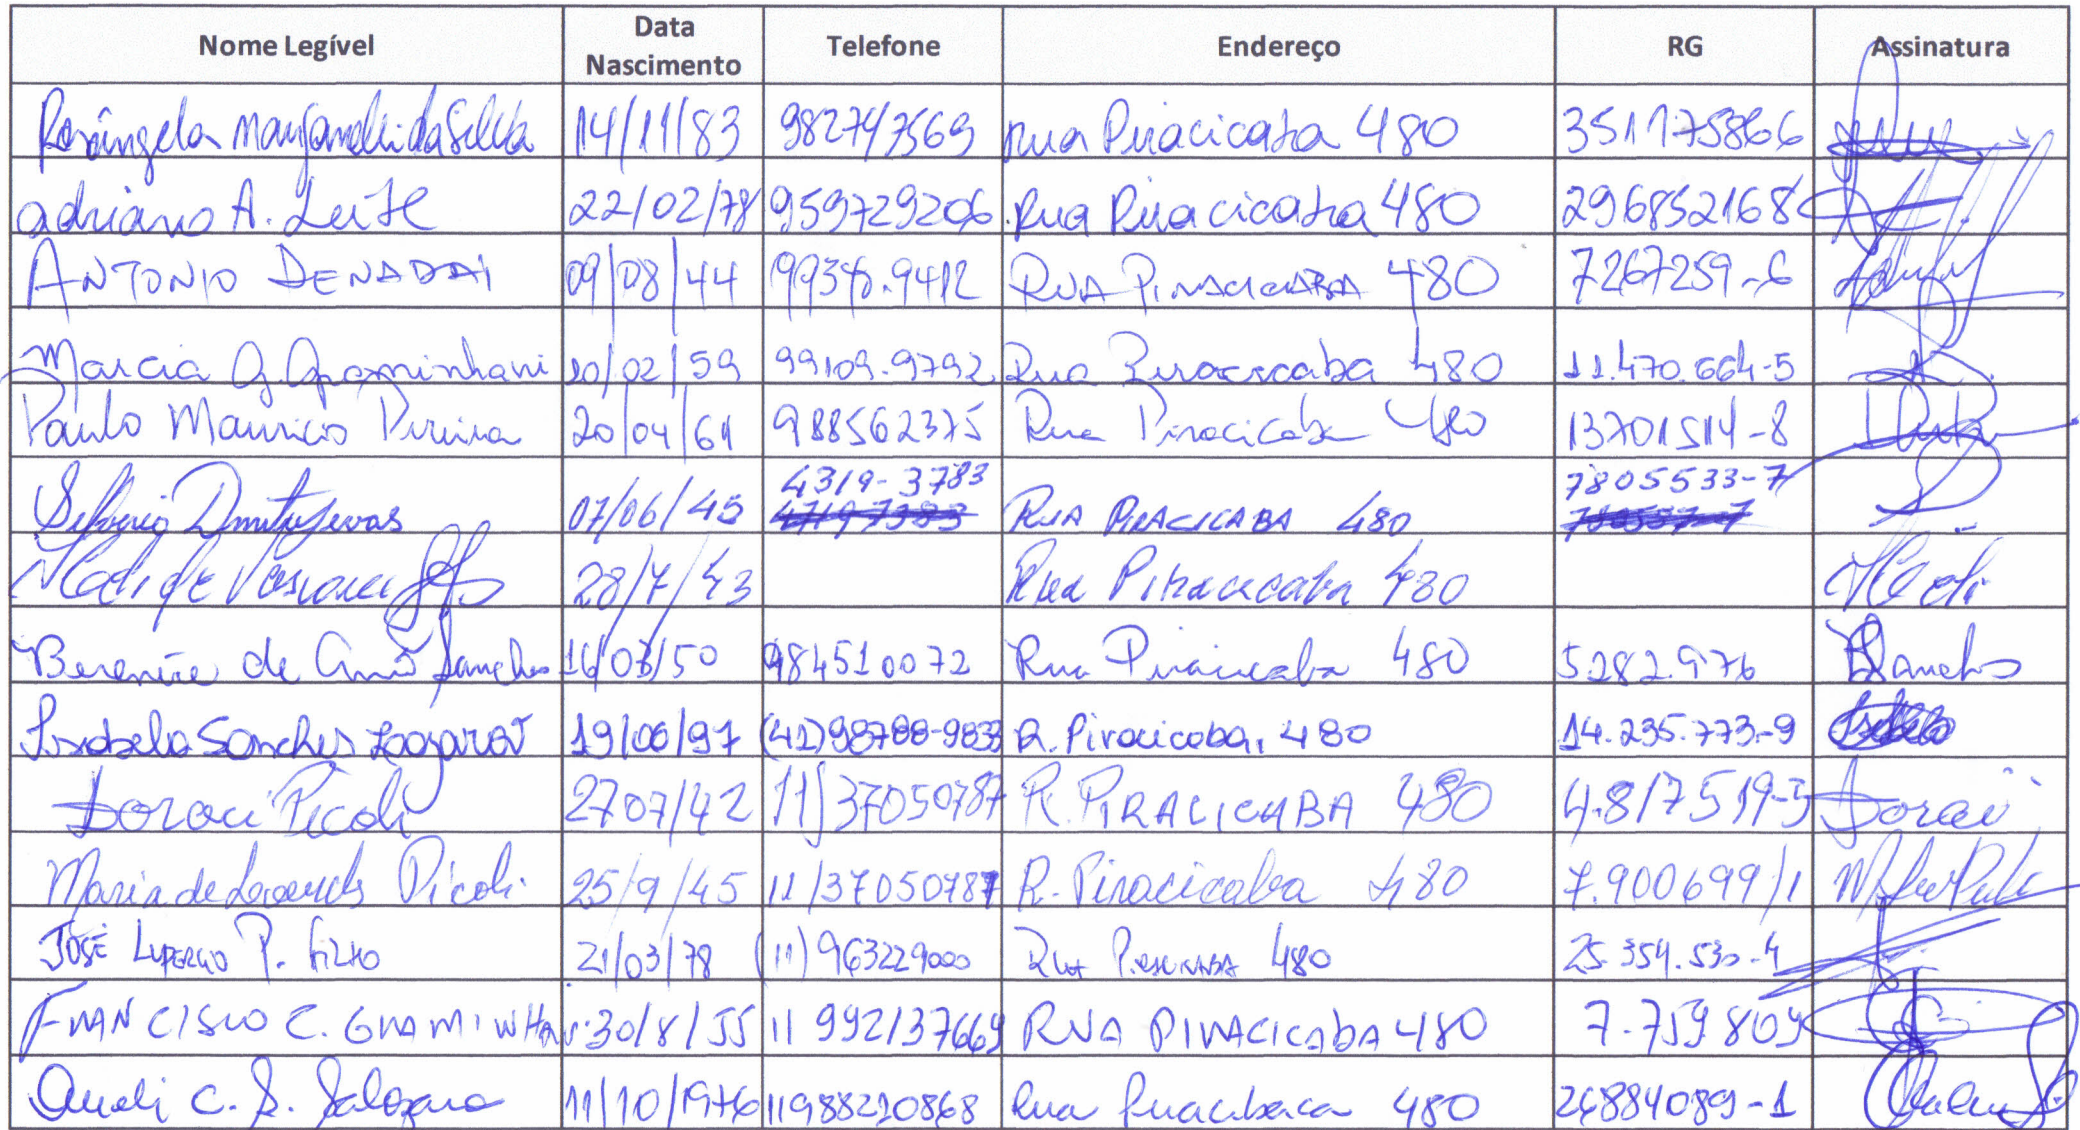 Nome Legível Data Nascimento Telefone Endereço RG Assinatura
Rosângela da Silva 14/11/83 982747569 rua Piracicaba 480 351175866
adriano A. Leite 22/02/78 959729206 Rua Piracicaba 480 296852168
ANTONIO DENADAI 09/08/44 99348.9412 RUA PIRACICABA 480 7267259-6
Marcia G. Graminhani 20/02/59 99109.9792 Rua Piracicaba 480 11.470.664-5
Paulo Mauricio Pereira 20/04/61 988562375 Rua Piracicaba 480 13701514-8
4319-3783 7805533-7
07/06/45 RUA PIRACICABA 480
28/7/43 Rua Piracicaba 480
Berenice de Sanches 16/03/50 984510072 Rua Piracicaba 480 5282.976 BSanches
Isabela Sanches 19/06/97 (41)98788-9833 R. Piracicaba, 480 14.235.773-9
Doraci Picoli 2707/42 11)37050787 R. PIRACICABA 480 4.817519-5 Doraci
Maria de Lourdes Picoli 25/9/45 11/37050787 R. Piracicaba 480 7.900699/1
JOSÉ LUPERCIO P. FILHO 21/03/78 (11) 963229000 RUA PIRACICABA 480 25.354.530-4
FRANCISCO C. GRAMINHANI 30/8/55 11 992137669 RUA PIRACICABA 480 7.759809
Aueli C. S. 11/10/1976 11988220868 Rua Piracibaca 480 26884089-1